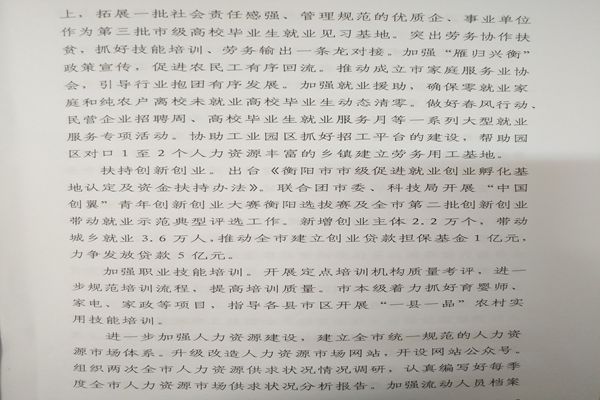 上，拓展一批社会责任感强、管理规范的优质企、事业单位
作为第三批市级高校毕业生就业见习基地。突出劳务协作扶
贫，抓好技能培训、劳务输出一条龙对接。加强“雁归兴衡”
政策宣传，促进农民工有序回流。推动成立市家庭服务业协
会，引导行业抱团有序发展。加强就业援助，确保零就业家
庭和纯农户离校未就业高校毕业生动态清零。做好春风行动、
民营企业招聘周、高校毕业生就业服务月等一系列大型就业
服务专项活动。协助工业园区抓好招工平台的建设，帮助园
区对口1至2个人力资源丰富的乡镇建立劳务用工基地。
扶持创新创业。出台《衡阳市市级促进就业创业孵化基
地认定及资金扶持办法》。联合团市委、科技局开展“中国
创翼”青年创新创业大赛衡阳选拔赛及全市第二批创新创业
带动就业示范典型评选工作。新增创业主体2.2万个，带动
城乡就业3.6万人，推动全市建立创业贷款担保基金1亿元，
力争发放贷款5亿元。
加强职业技能培训。开展定点培训机构质量考评，进一
步规范培训流程，提高培训质量。市本级着力抓好育婴师、
家电、家政等项目，指导各县市区开展“一县一品”农村实
用技能培训。
进一步加强人力资源建设，建立全市统一规范的人力资
源市场体系。升级改造人力资源市场网站，开设网站公众号。
组织两次全市人力资源供求状况情况调研，认真编写好每季
度全市人力资源市场供求状况分析报告。加强流动人员档案